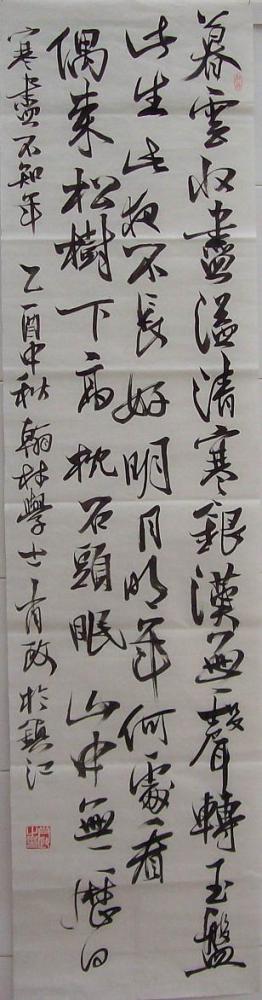 暮雲收盡溢清寒銀漢無聲轉玉盤
此生此夜不長好明月明年何處看
偶來松樹下高枕石頭眠山中無歷日
寒盡不知年 乙酉中秋翰林學士育政於鎮江